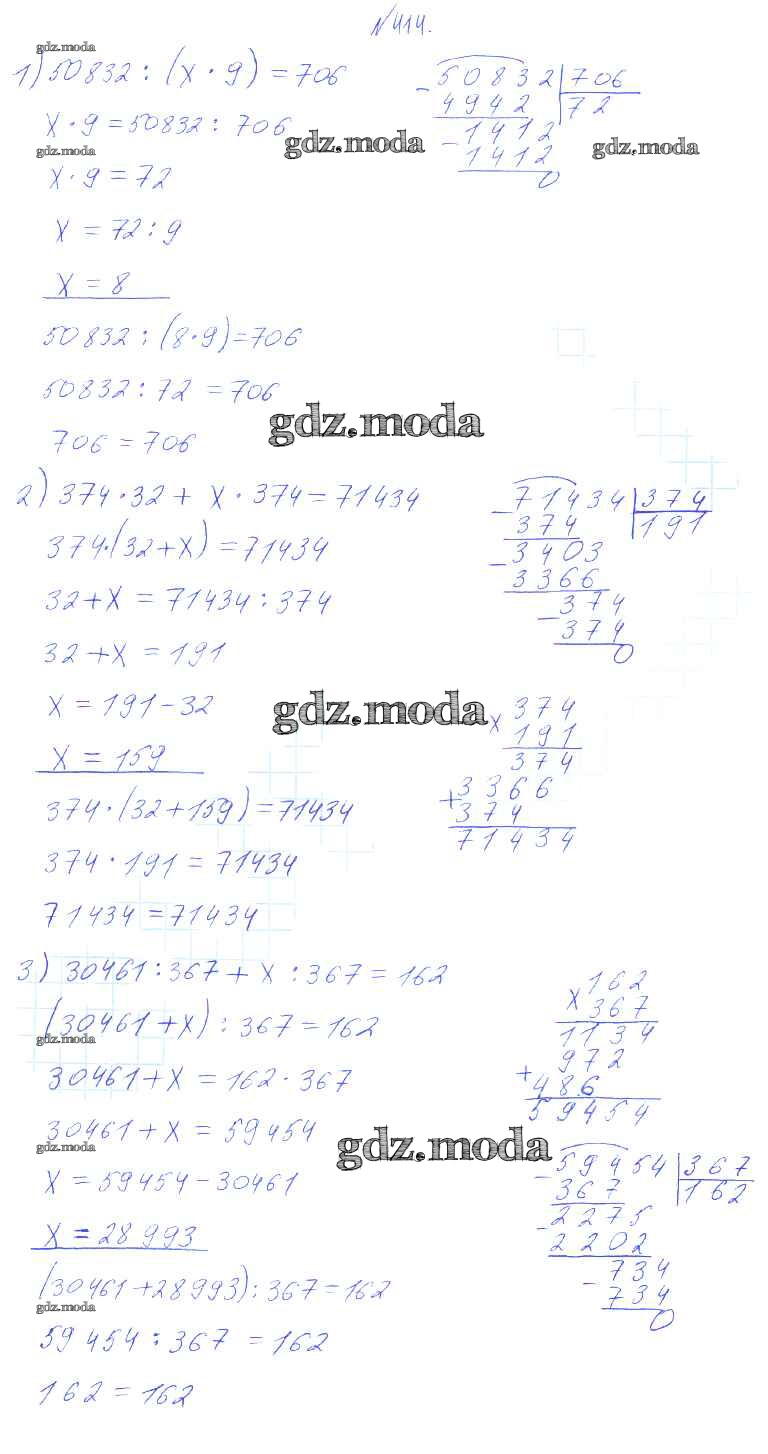 №414.
gdz.moda
1) 50832 : (x · 9) = 706
x · 9 = 50832 : 706
gdz.moda
x · 9 = 72
x = 72 : 9
x = 8
50832 : (8 · 9) = 706
50832 : 72 = 706
706 = 706
- 50832 | 706
4942 | 72
- 1412
1412
0
gdz.moda
gdz.moda
gdz.moda
2) 374 · 32 + x · 374 = 71434
374 · (32 + x) = 71434
32 + x = 71434 : 374
32 + x = 191
x = 191 - 32
x = 159
374 · (32 + 159) = 71434
374 · 191 = 71434
71434 = 71434
- 71434 | 374
374 | 191
- 3403
3366
- 374
374
0
gdz.moda
x 374
191
374
+ 3366
374
71434
3) 30461 : 367 + x : 367 = 162
(30461 + x) : 367 = 162
gdz.moda
30461 + x = 162 · 367
30461 + x = 59454
gdz.moda
x = 59454 - 30461
x = 28993
(30461 + 28993) : 367 = 162
gdz.moda
59454 : 367 = 162
162 = 162
x 162
367
1134
+ 972
486
59454
gdz.moda
- 59454 | 367
367 | 162
- 2275
2202
- 734
734
0